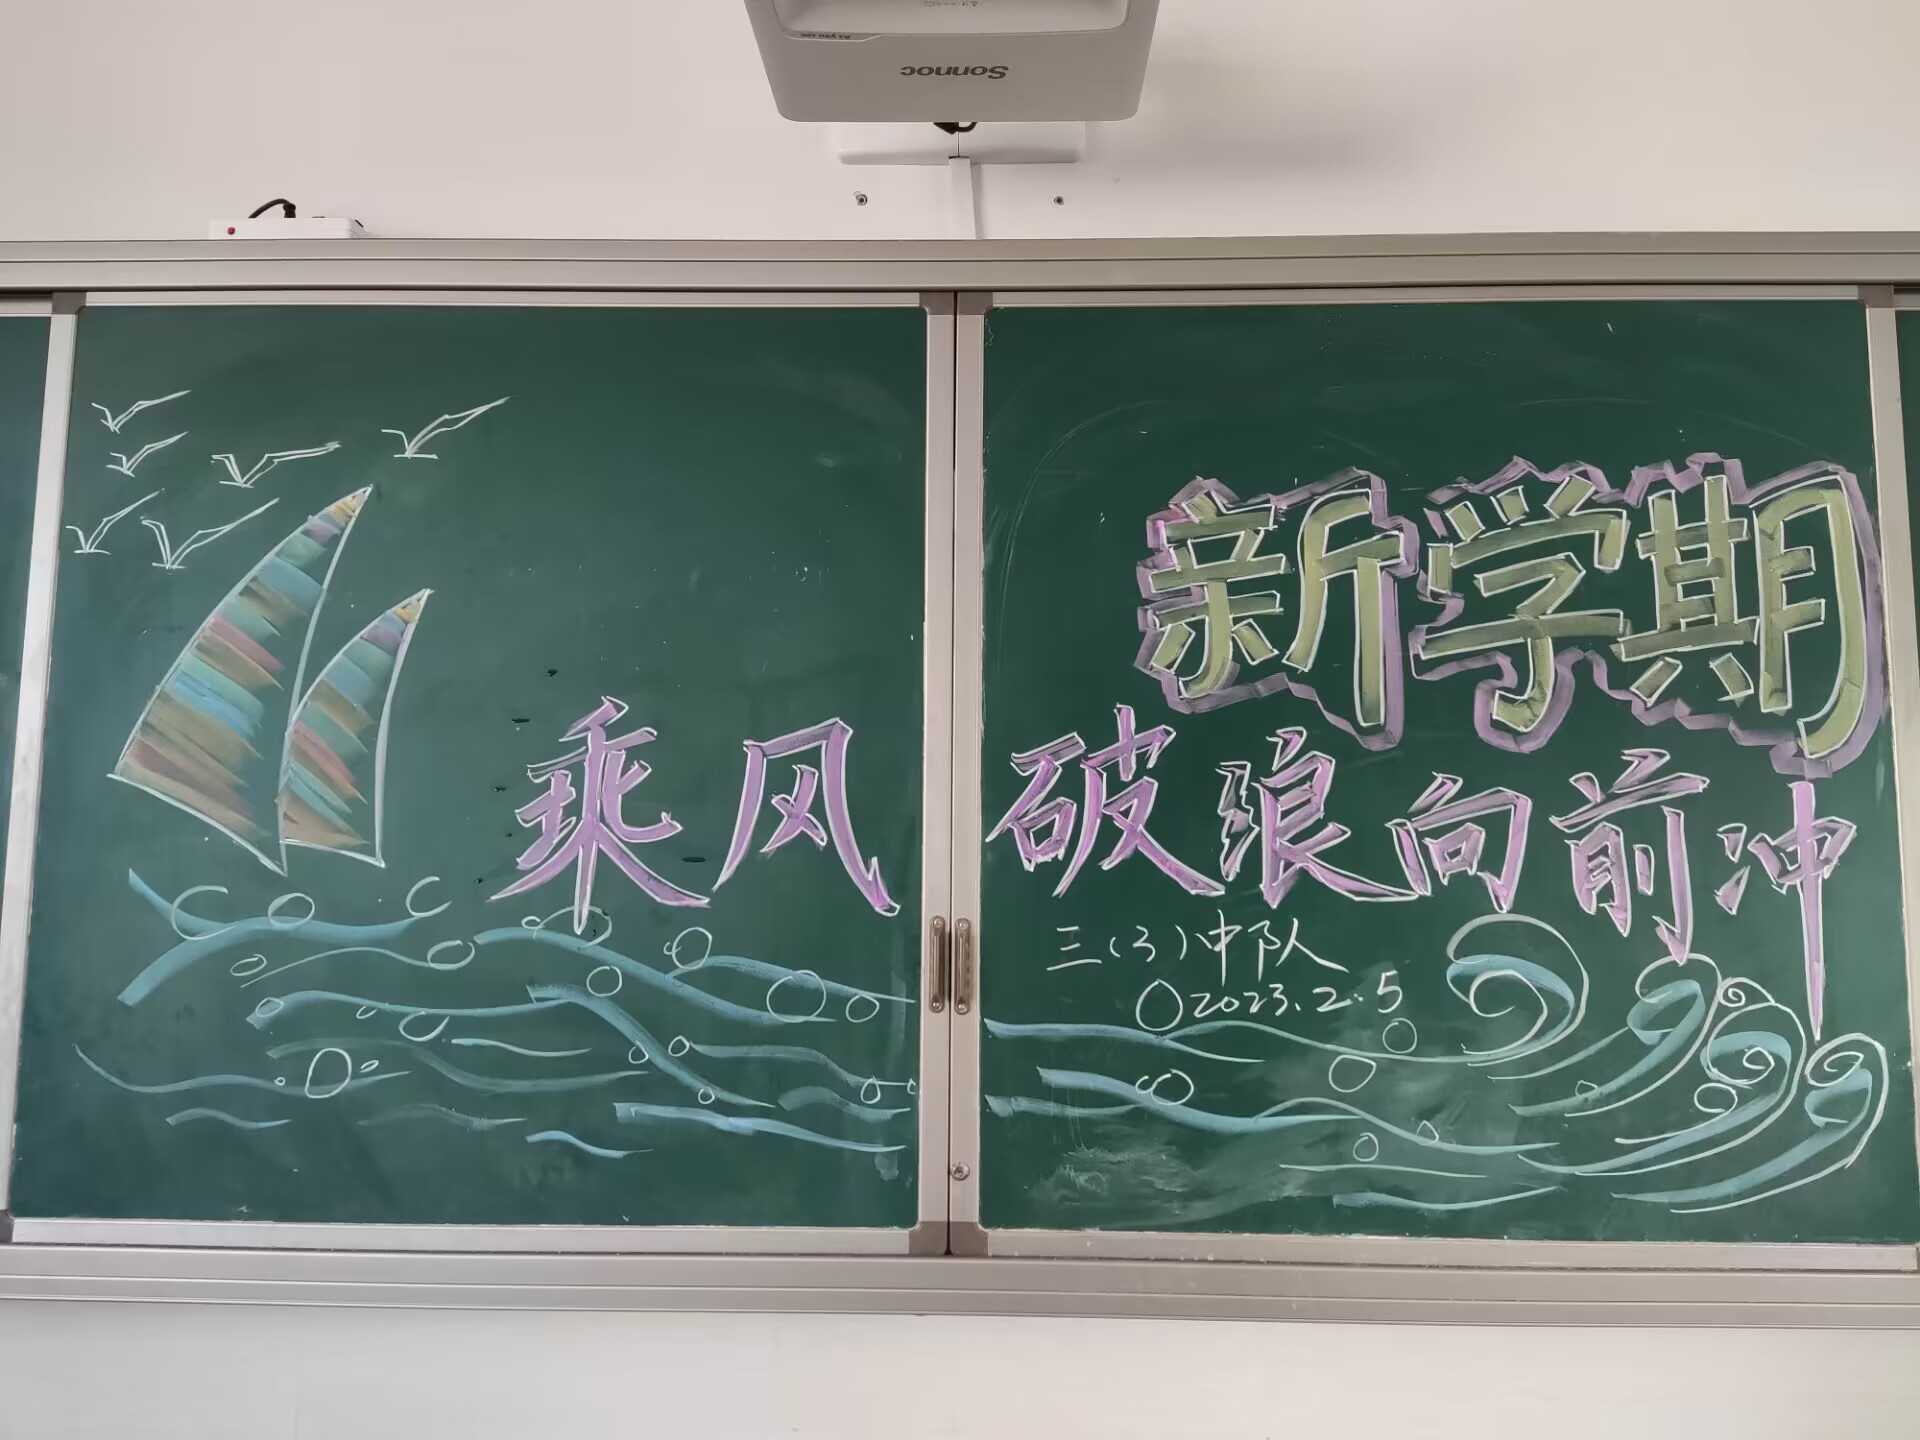 Sonnoc
新学期
乘风破浪向前冲
三(3)中队
2023.2.5